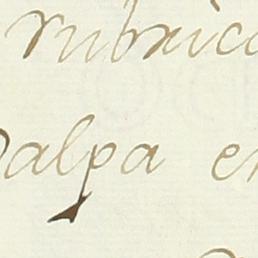 rubrica
palpa en